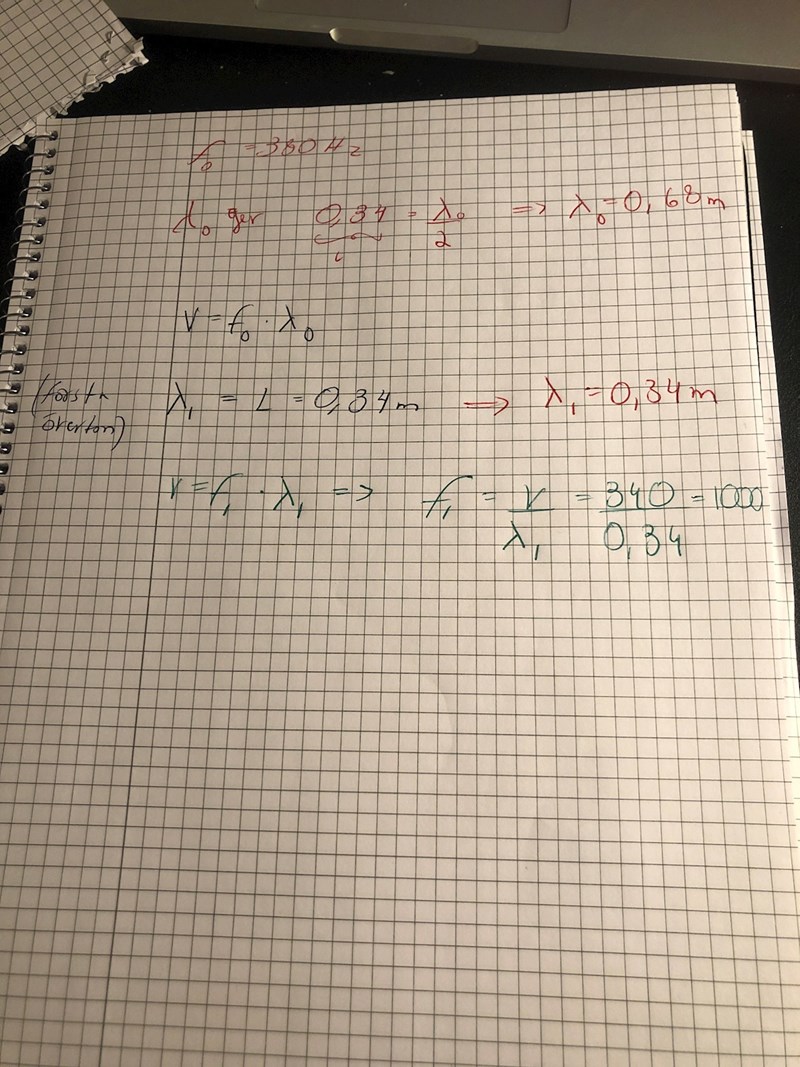 f₀ = 380 Hz
λ₀ ger 0,34 = λ₀/2 => λ₀ = 0,68 m
L
V = f₀ · λ₀
(första överton) λ₁ = L = 0,34 m => λ₁ = 0,34 m
V = f₁ · λ₁ => f₁ = V/λ₁ = 340/0,34 = 1000